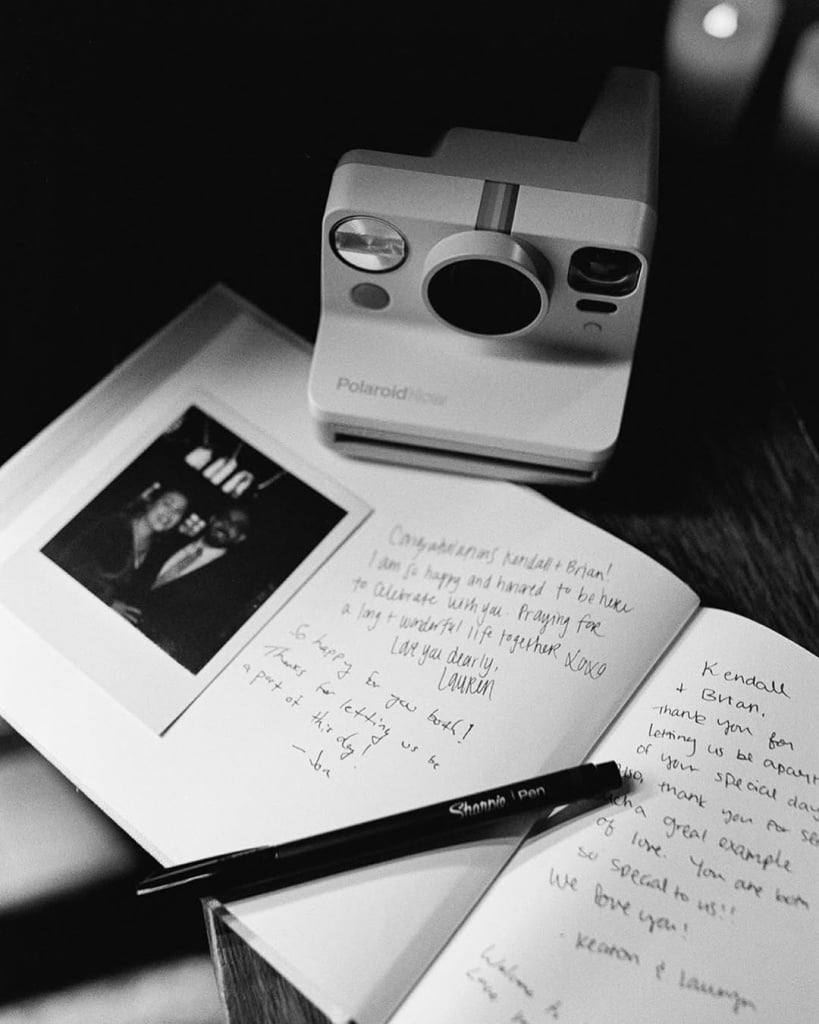 PolaroidNow
Congratulations Kendall + Brian!
I am so happy and honored to be here
to celebrate with you. Praying for
a long + wonderful life together XOXO
Love you dearly,
Lauren
So happy for you both!
Thanks for letting us be
a part of this day!
Sharpie | Pen
Kendall
+ Brian,
Thank you for
letting us be apart
of your special day
thank you for
a great example
of love. You are both
so special to us!!
We love you!
- Keaton &
Welcome to
Love